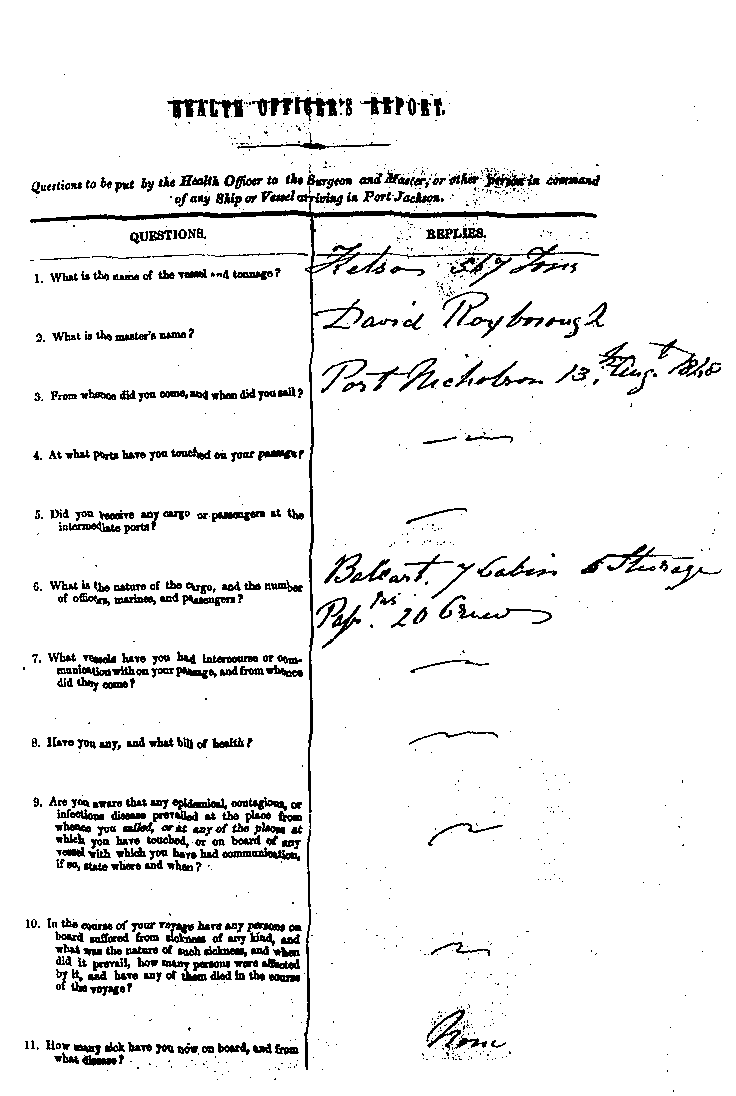 HEALTH OFFICER'S REPORT.
Questions to be put by the Health Officer to the Surgeon and Master, or other person in command
of any Ship or Vessel arriving in Port Jackson.
QUESTIONS. REPLIES.
1. What is the name of the vessel and tonnage? 567 Tons
2. What is the master's name? David Roxborough
3. From whence did you come, and when did you sail? Port Nicholson 13th Augt
4. At what ports have you touched on your passage? —
5. Did you receive any cargo or passengers at the
intermediate ports? —
6. What is the nature of the cargo, and the number
of officers, marines, and passengers?
Balcart. 7 Cabin Sturage
Pass. 20 Crew
7. What vessels have you had intercourse or com-
munication with on your passage, and from whence
did they come? —
8. Have you any, and what bill of health? —
9. Are you aware that any epidemical, contagious, or
infectious disease prevailed at the place from
whence you sailed, or at any of the places at
which you have touched, or on board of any
vessel with which you have had communication,
if so, state where and when? —
10. In the course of your voyage have any persons on
board suffered from sickness of any kind, and
what was the nature of such sickness, and when
did it prevail, how many persons were affected
by it, and have any of them died in the course
of the voyage? —
11. How many sick have you now on board, and from
what disease? None